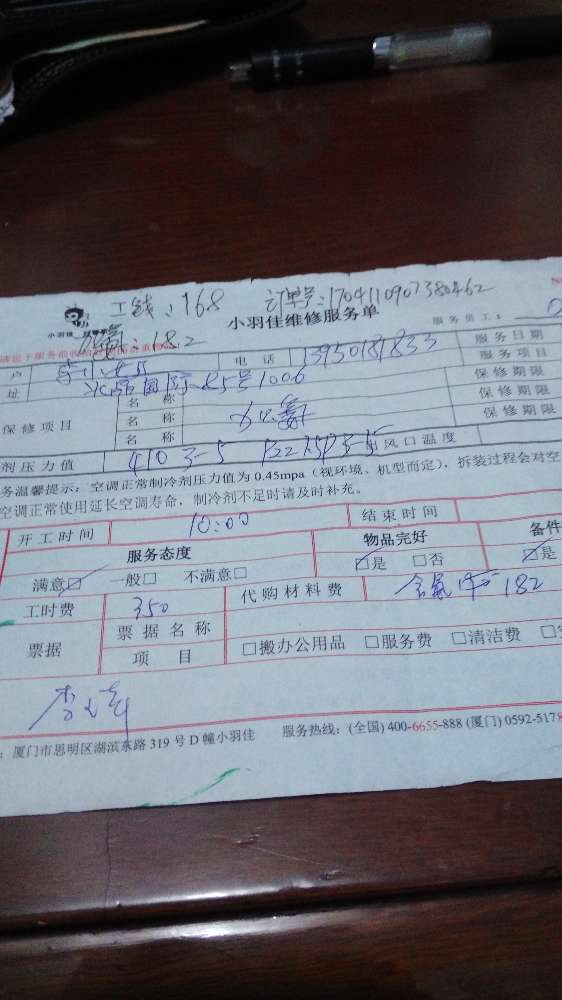 工钱:168 订单号:1704110907380462
小羽佳 小羽佳维修服务单
182 服务员工:
户 电话 13950181833 服务日期
址 号1006 服务项目
名称 保修期限
保修项目 名称 加氟 保修期限
名称 保修期限
剂压力值 410 3-5 R22 出风口温度
务温馨提示:空调正常制冷剂压力值为 0.45mpa(视环境、机型而定),拆装过程会对空
空调正常使用延长空调寿命,制冷剂不足时请及时补充。
开工时间 10:00 结束时间
服务态度 物品完好 备件
满意☑ 一般□ 不满意□ ☑是 □否 ☑是
工时费 350 代购材料费 含氟 182
票据 票据名称
项目 □搬办公用品 □服务费 □清洁费
:厦门市思明区湖滨东路 319 号 D 幢小羽佳 服务热线:(全国) 400-6655-888 (厦门) 0592-517